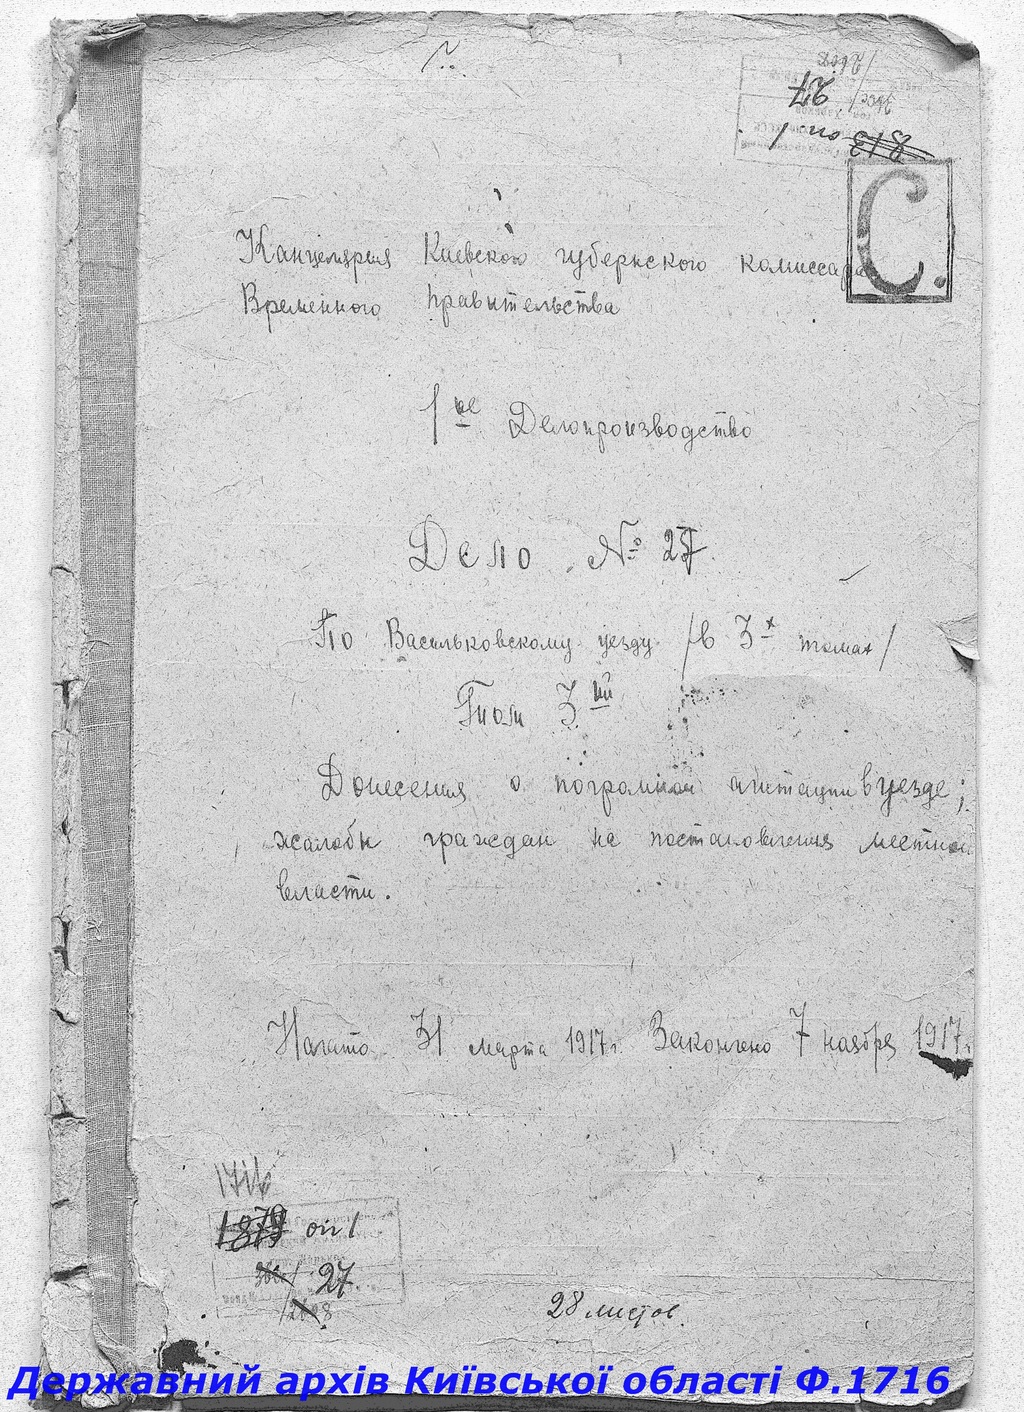 27
813 оп. 1
С.
Канцелярия Киевского губернского комиссара
Временного правительства
1ое Делопроизводство
Дело № 27
По Васильковскому уезду /в 3х томах/
Том 3ий
Донесения о погромной агитации в уезде;
жалобы граждан на постановления местной
власти.
Начато 31 марта 1917 г. Закончено 7 ноября 1917 г.
1716
1879 оп 1
27
28 листов.
Державний архів Київської області Ф.1716